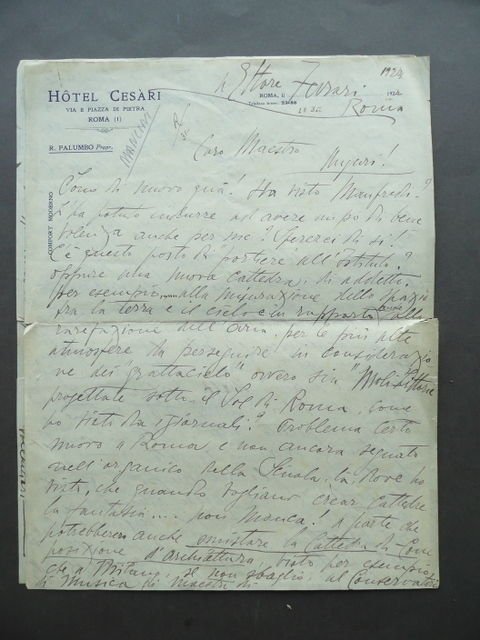 a Ettore Ferrari 1924
HÔTEL CESÀRI
VIA E PIAZZA DI PIETRA
ROMA (1)
R. PALUMBO Propr.
ROMA, li 1924
Telefono interc. 23-88
Roma
COMFORT MODERNO
MANCINI
Caro Maestro
Auguri!
Sono di nuovo qua! Ha visto Manfredi?
Si ha potuto indurre ad avere un po' di bene
volenza anche per me? Sperezei di si!
C'è questo posto di portiere all'Istituto?
oppure una nuova Cattedra, di addetti
per esempio alla misurazione dello spazio
fra la terra e il cielo e in rapporto alla
rarefazione dell'aria per le più alte
atmosfere da perseguire in considerazio
ne dei "grattacielo" ovvero sia "Moli Littorie
progettate sotto il Sol di Roma, come
ho visto da i giornali? Problema certo
nuovo a Roma e non ancora segnato
nell'organico della Scuola, la dove ho
visto, che quando vogliano crear Cattedre
la fantasia.... non manca! A parte che
potrebbero anche la Cattedra di Com
posizione d'architettura, visto per esempio,
che a Milano, se non sbaglio, al Conservato
di Musica di maestri di